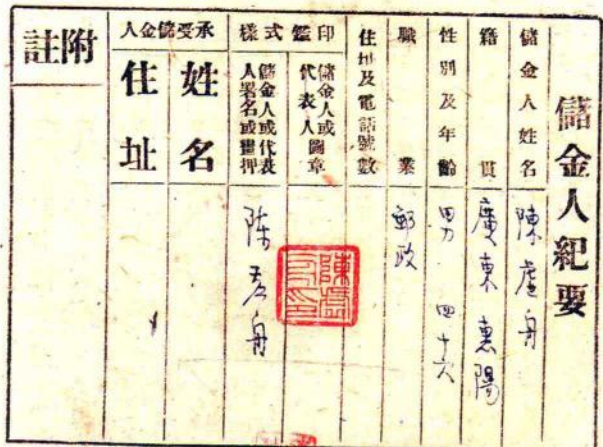 儲金人紀要
儲金人姓名 陳虛舟
籍貫 廣東惠陽
性別及年齡 男 四十六
職業 郵政
住址及電話號數
印鑑式樣
儲金人或代表人圖章
儲金人或代表人署名或畫押 陈虚舟
承受儲金人
姓名
住址
附註